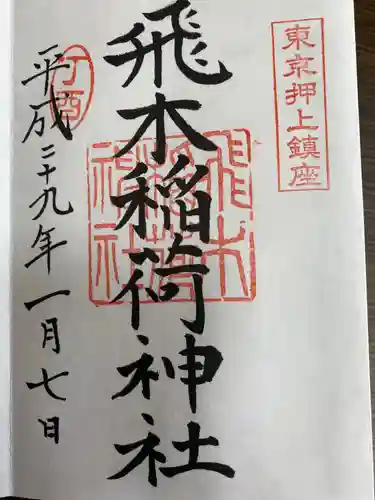 東京押上鎮座
飛木稲荷神社
飛木稲荷神社
丁酉
平成二十九年一月七日